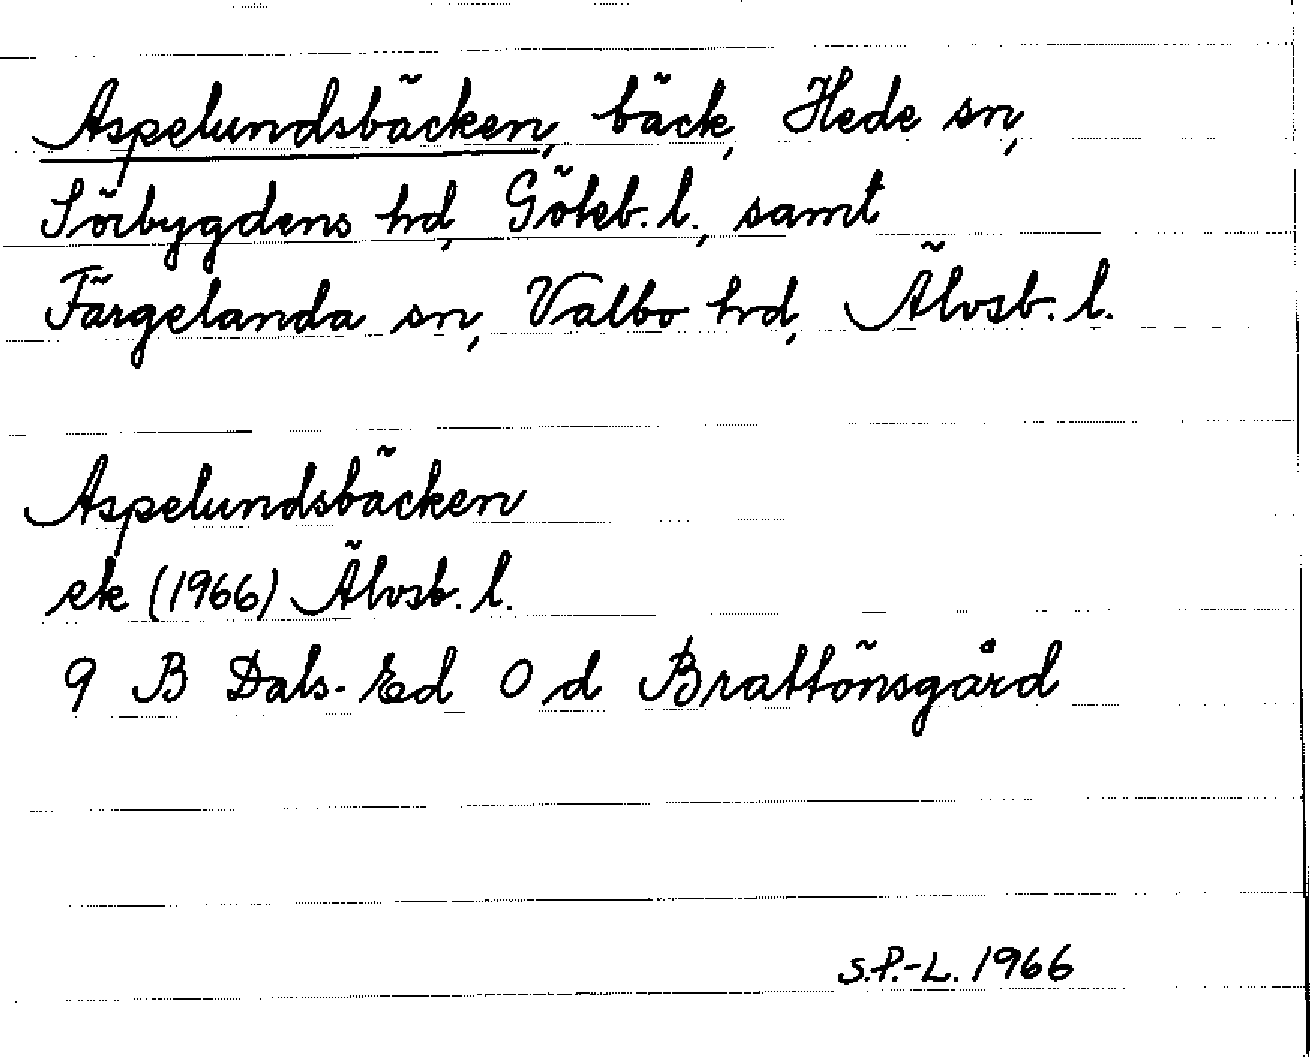 Aspelundsbäcken, bäck, Hede sn,
Sörbygdens hd, Göteb. l., samt
Färgelanda sn, Valbo hd, Älvsb. l.
Aspelundsbäcken
ek (1966) Älvsb. l.
9 B Dals-Ed 0 d Brattönsgård
S.P.-L. 1966